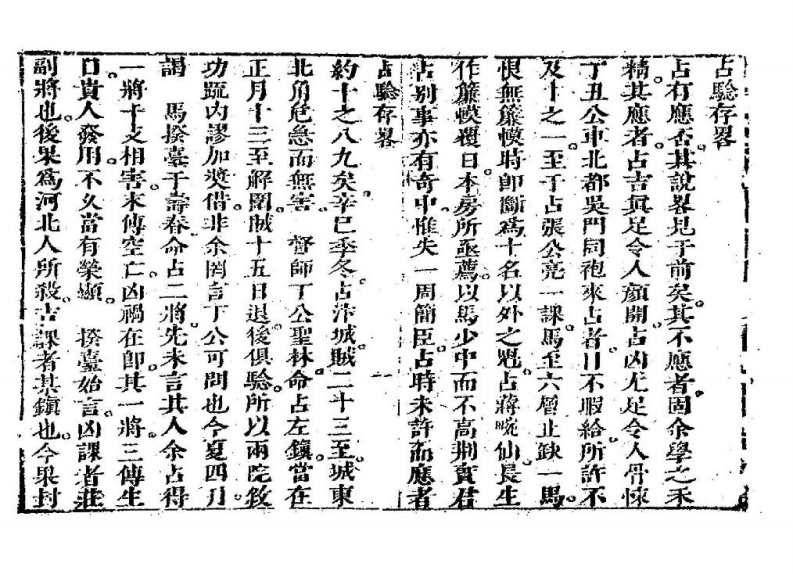 占驗存畧
占有應否其說畧見于前矣其不應者固余學之未
精其應者占吉與足令人顏開占凶尤足令人骨悚
丁丑公車北都吳門同袍來占者日不暇給所許不
及十之一至于占張公亮一課馬至六層止缺一馬
恨無簾幙時卽斷爲十名以外之魁占蔣畹仙長生
作簾幙覆日本房所亟薦以馬少中而不高荆實君
占别事亦有奇中惟失一周簡臣占時未許而應者
占驗存畧
約十之八九矣辛巳季冬占汴城賊二十三至城東
北角危急而無害 督師丁公聖林命占左鎮當在
正月十三至解圍賊十五日退後俱驗所以兩院敘
功疏內謬加奬借非余罔言丁公可問也今夏四月
謁 馬撫臺于壽春命占二將先未言其人余占得
一將干支相害末傳空亡凶禍在卽其一將三傳生
日貴人發用不久當有榮顯 撫臺始言凶課者莊
副將也後果爲河北人所殺吉課者某鎮也今果封